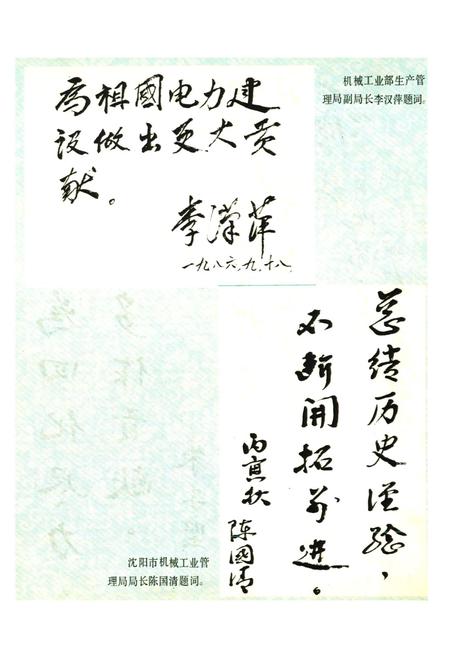 为祖國电力建
设做出更大贡
献。
李漢萍
一九八六.九.十八
机械工业部生产管
理局副局长李汉萍题词。
总结历史经验，
不断开拓前进。
丙寅秋
陈國清
沈阳市机械工业管
理局局长陈国清题词。